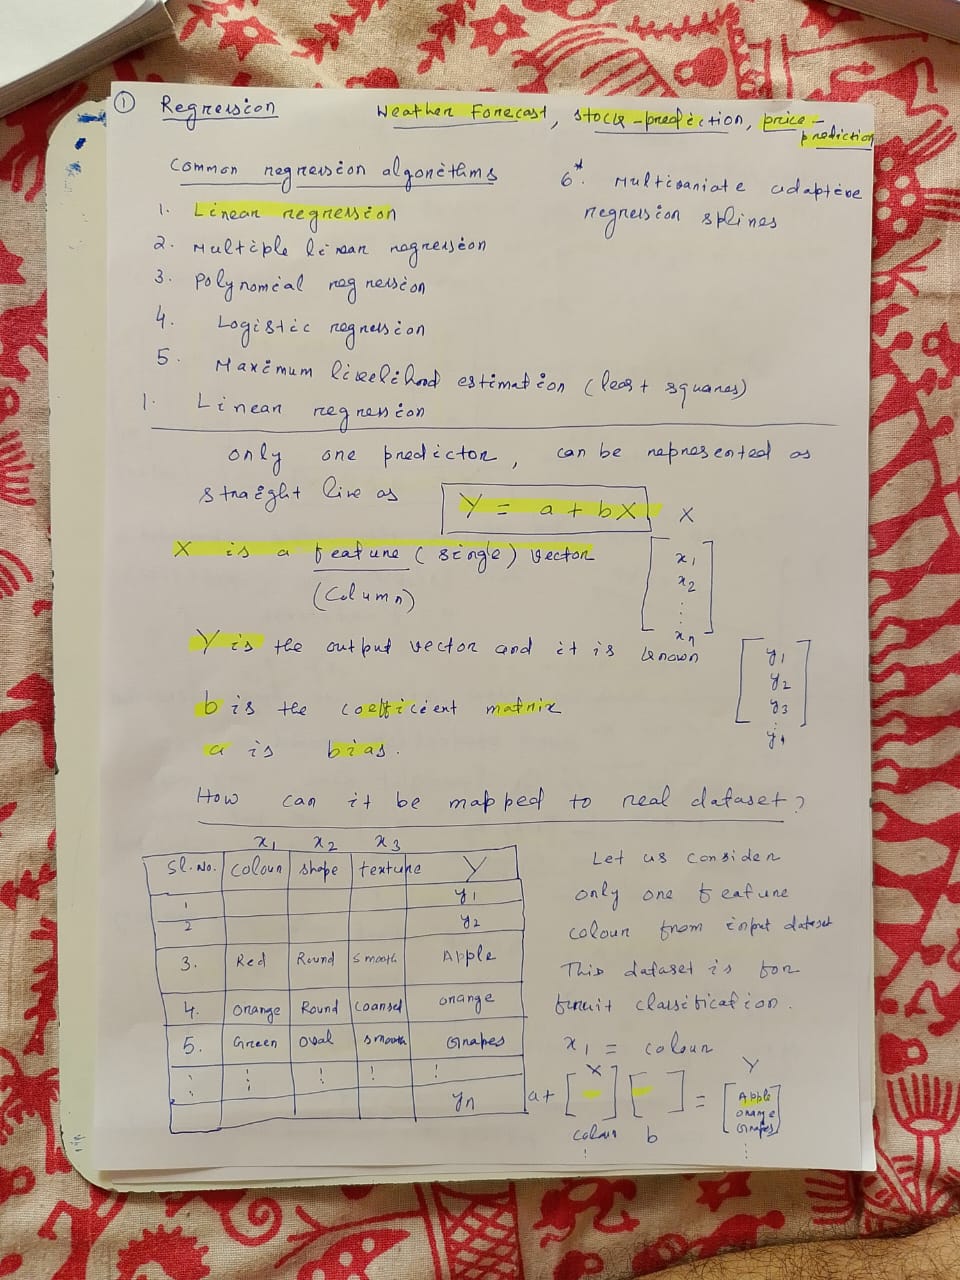 ① Regression
Weather Forecast, stock-prediction, price-
prediction
Common regression algorithms
1. Linear regression
2. Multiple linear regression
3. Polynomial regression
4. Logistic regression
5. Maximum likelihood estimation (least squares)
6*. Multivariate adaptive
regression splines
1. Linear regression
only one predictor, can be represented as
straight line as Y = a + bX
X
X is a feature (single) vector
(Column)
x1
x2
⋮
xn
Y is the output vector and it is known
y1
y2
y3
⋮
b is the coefficient matrix
a is bias.
How can it be mapped to real dataset?
x1 x2 x3
Sl. No. colour shape texture Y
1 y1
2 y2
3. Red Round smooth Apple
4. orange Round orange
5. Green oval smooth Grapes
⋮ ⋮ ⋮ ⋮ ⋮
yn
Let us consider
only one feature
colour from input dataset
This dataset is for
fruit classification.
x1 = colour
X Y
a + [ ] [ ] = [Apple
orange
Grapes]
colour b
⋮ ⋮